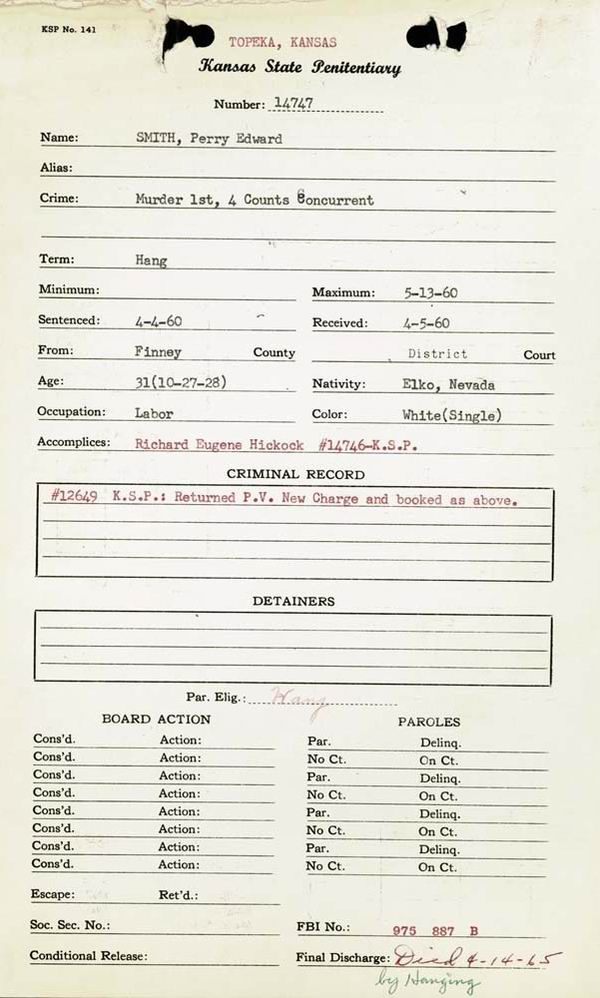 KSP No. 141
TOPEKA, KANSAS
Kansas State Penitentiary
Number: 14747
Name: SMITH, Perry Edward
Alias:
Crime: Murder 1st, 4 Counts Concurrent
Term: Hang
Minimum: Maximum: 5-13-60
Sentenced: 4-4-60 Received: 4-5-60
From: Finney County District Court
Age: 31(10-27-28) Nativity: Elko, Nevada
Occupation: Labor Color: White(Single)
Accomplices: Richard Eugene Hickock #14746-K.S.P.
CRIMINAL RECORD
#12649 K.S.P.: Returned P.V. New Charge and booked as above.
DETAINERS
Par. Elig.: Hang
BOARD ACTION PAROLES
Cons'd. Action: Par. Delinq.
Cons'd. Action: No Ct. On Ct.
Cons'd. Action: Par. Delinq.
Cons'd. Action: No Ct. On Ct.
Cons'd. Action: Par. Delinq.
Cons'd. Action: No Ct. On Ct.
Cons'd. Action: Par. Delinq.
Cons'd. Action: No Ct. On Ct.
Escape: Ret'd.:
Soc. Sec. No.: FBI No.: 975 887 B
Conditional Release: Final Discharge: Died 4-14-65
by Hanging